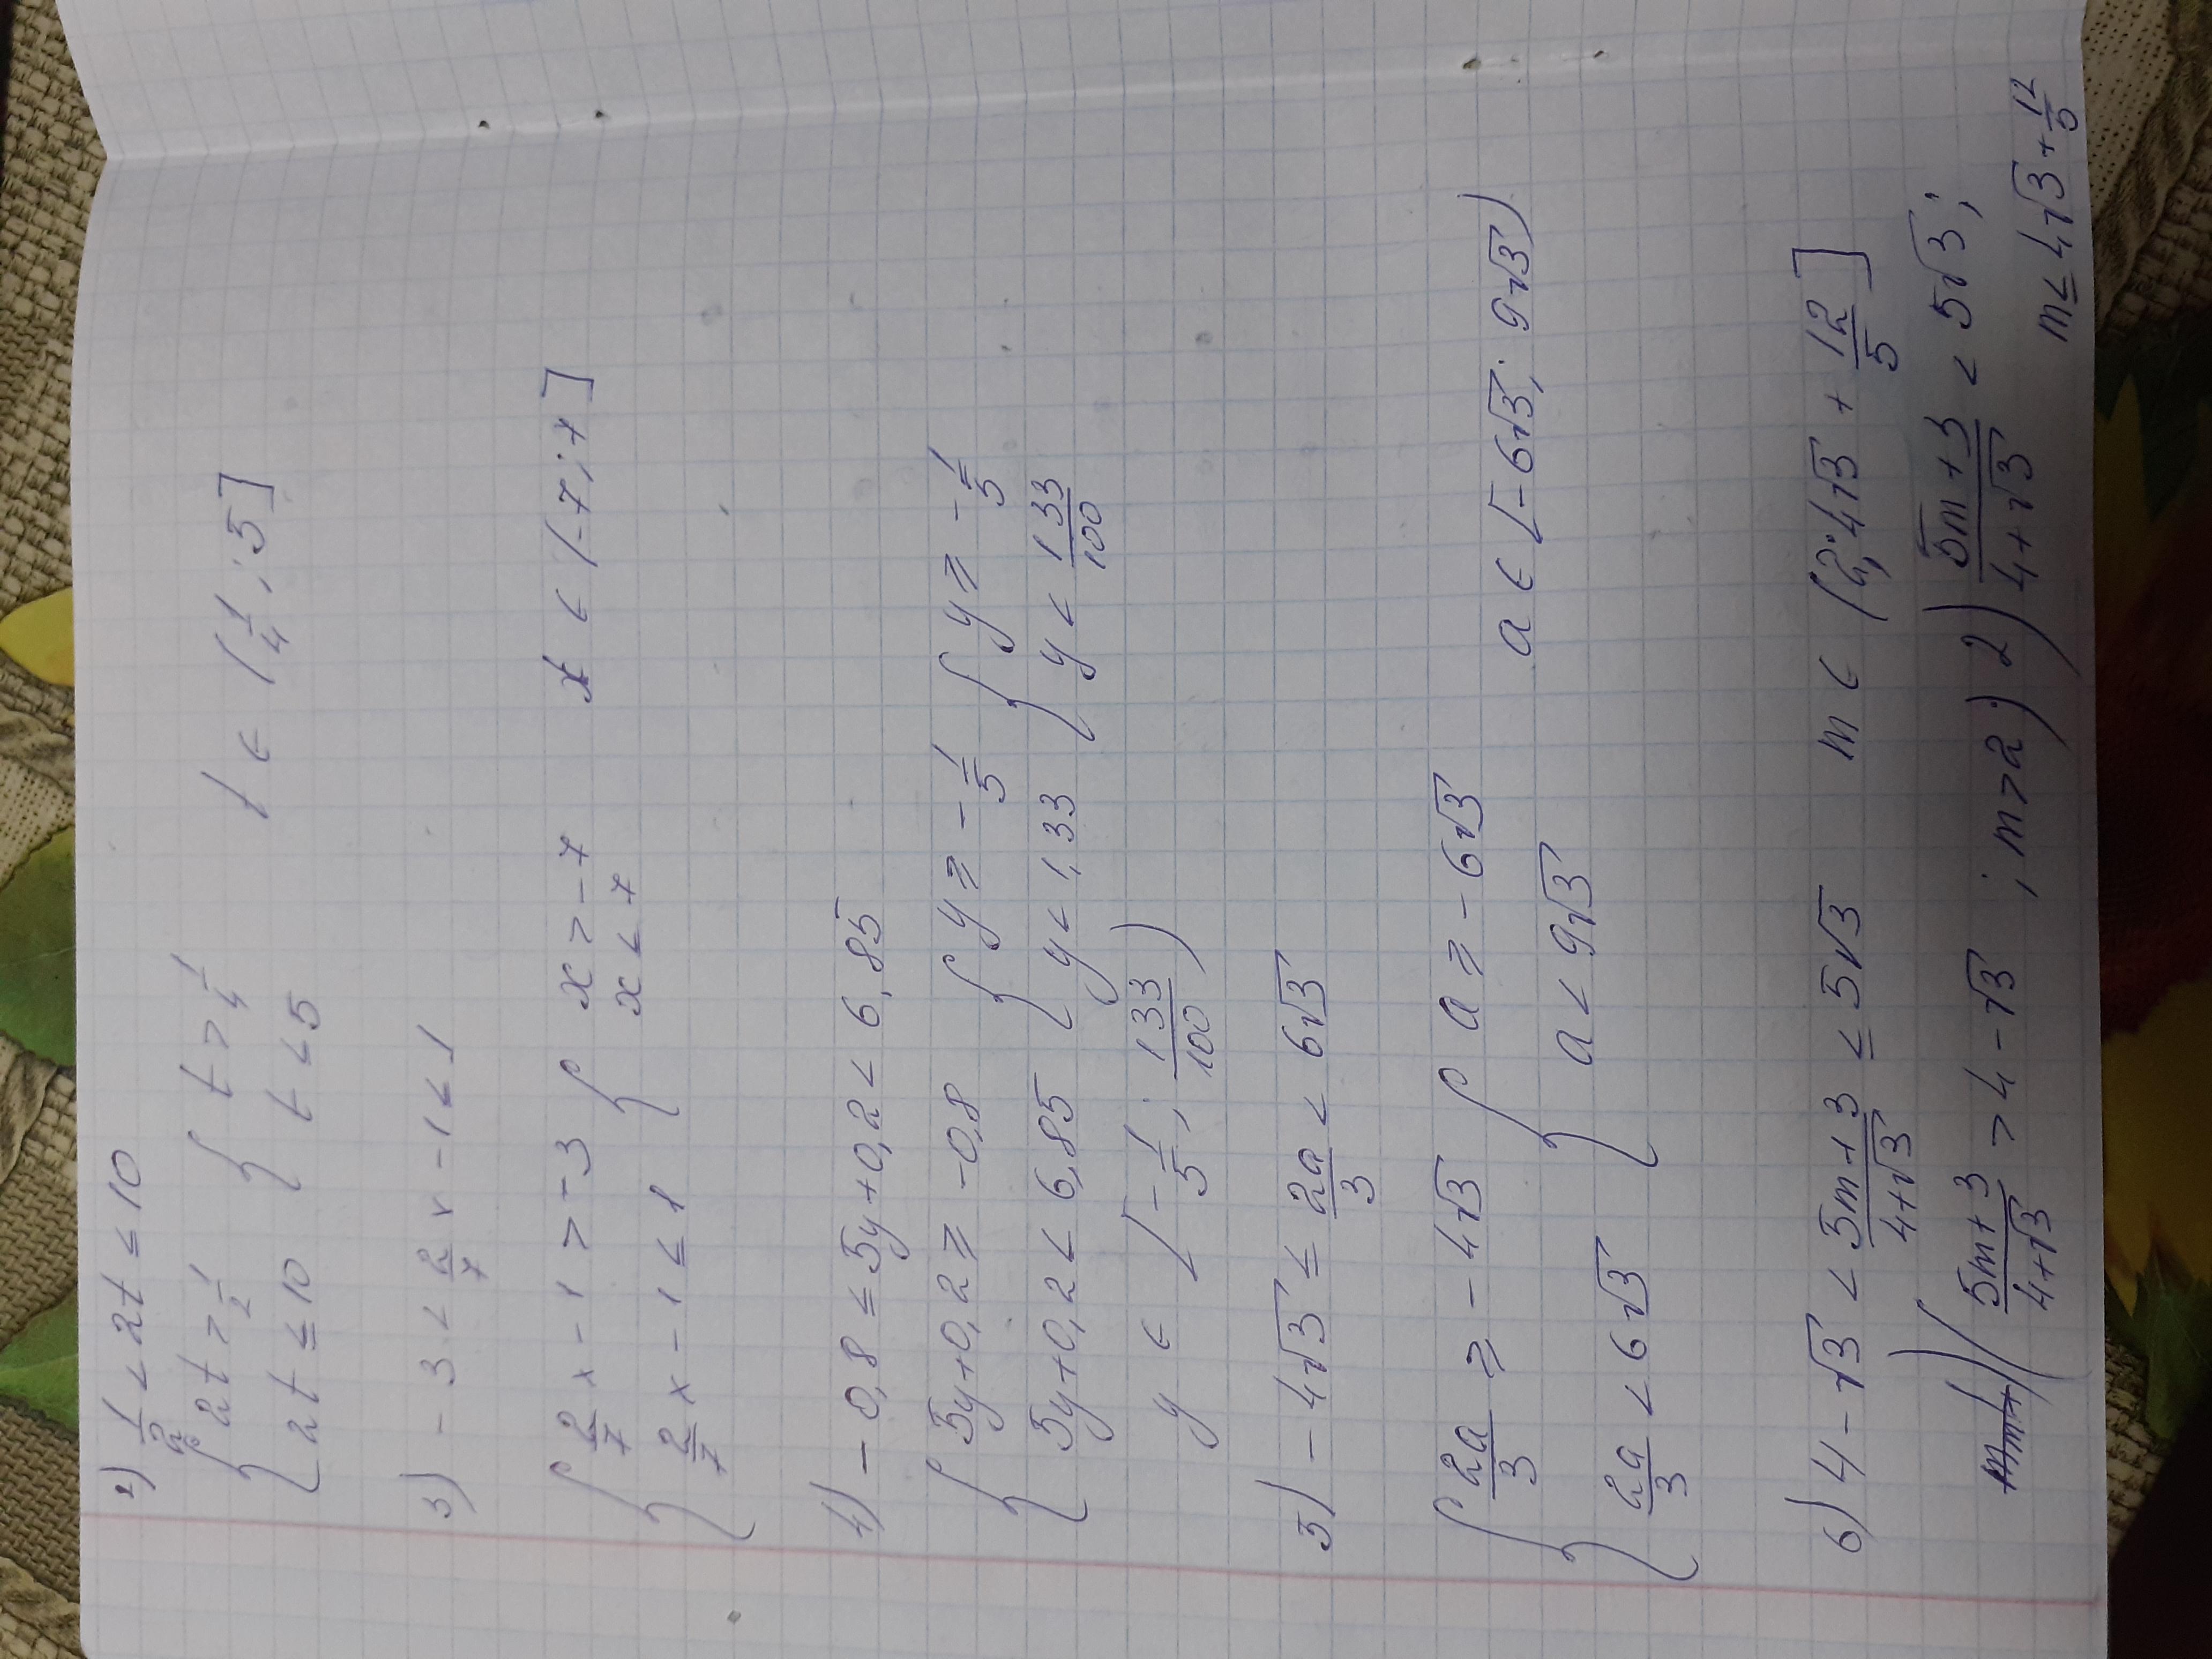 2) 1/2 < 2t ≤ 10
{ 2t > 1/2 { t > 1/4 t ∈ (1/4; 5]
2t ≤ 10 t ≤ 5
3) -3 < 2/7 x - 1 ≤ 1
{ 2/7 x - 1 > -3 { x > -7 x ∈ (-7; 7]
2/7 x - 1 ≤ 1 x ≤ 7
4) -0,8 ≤ 5y+0,2 < 6,85
{ 5y+0,2 ⩾ -0,8 { y ⩾ -1/5 { y ⩾ -1/5
5y+0,2 < 6,85 y < 1,33 y < 133/100
y ∈ [-1/5; 133/100)
5) -4√3 ≤ 2a/3 < 6√3
{ 2a/3 ⩾ -4√3 { a ⩾ -6√3 a ∈ [-6√3; 9√3)
2a/3 < 6√3 a < 9√3
6) 4-√3 < 5m+3/4+√3 ≤ 5√3 m ∈ (2; 4√3 + 12/5]
1) 5m+3/4+√3 > 4-√3 ; m > 2; 2) 5m+3/4+√3 < 5√3;
m ≤ 4√3 + 12/5